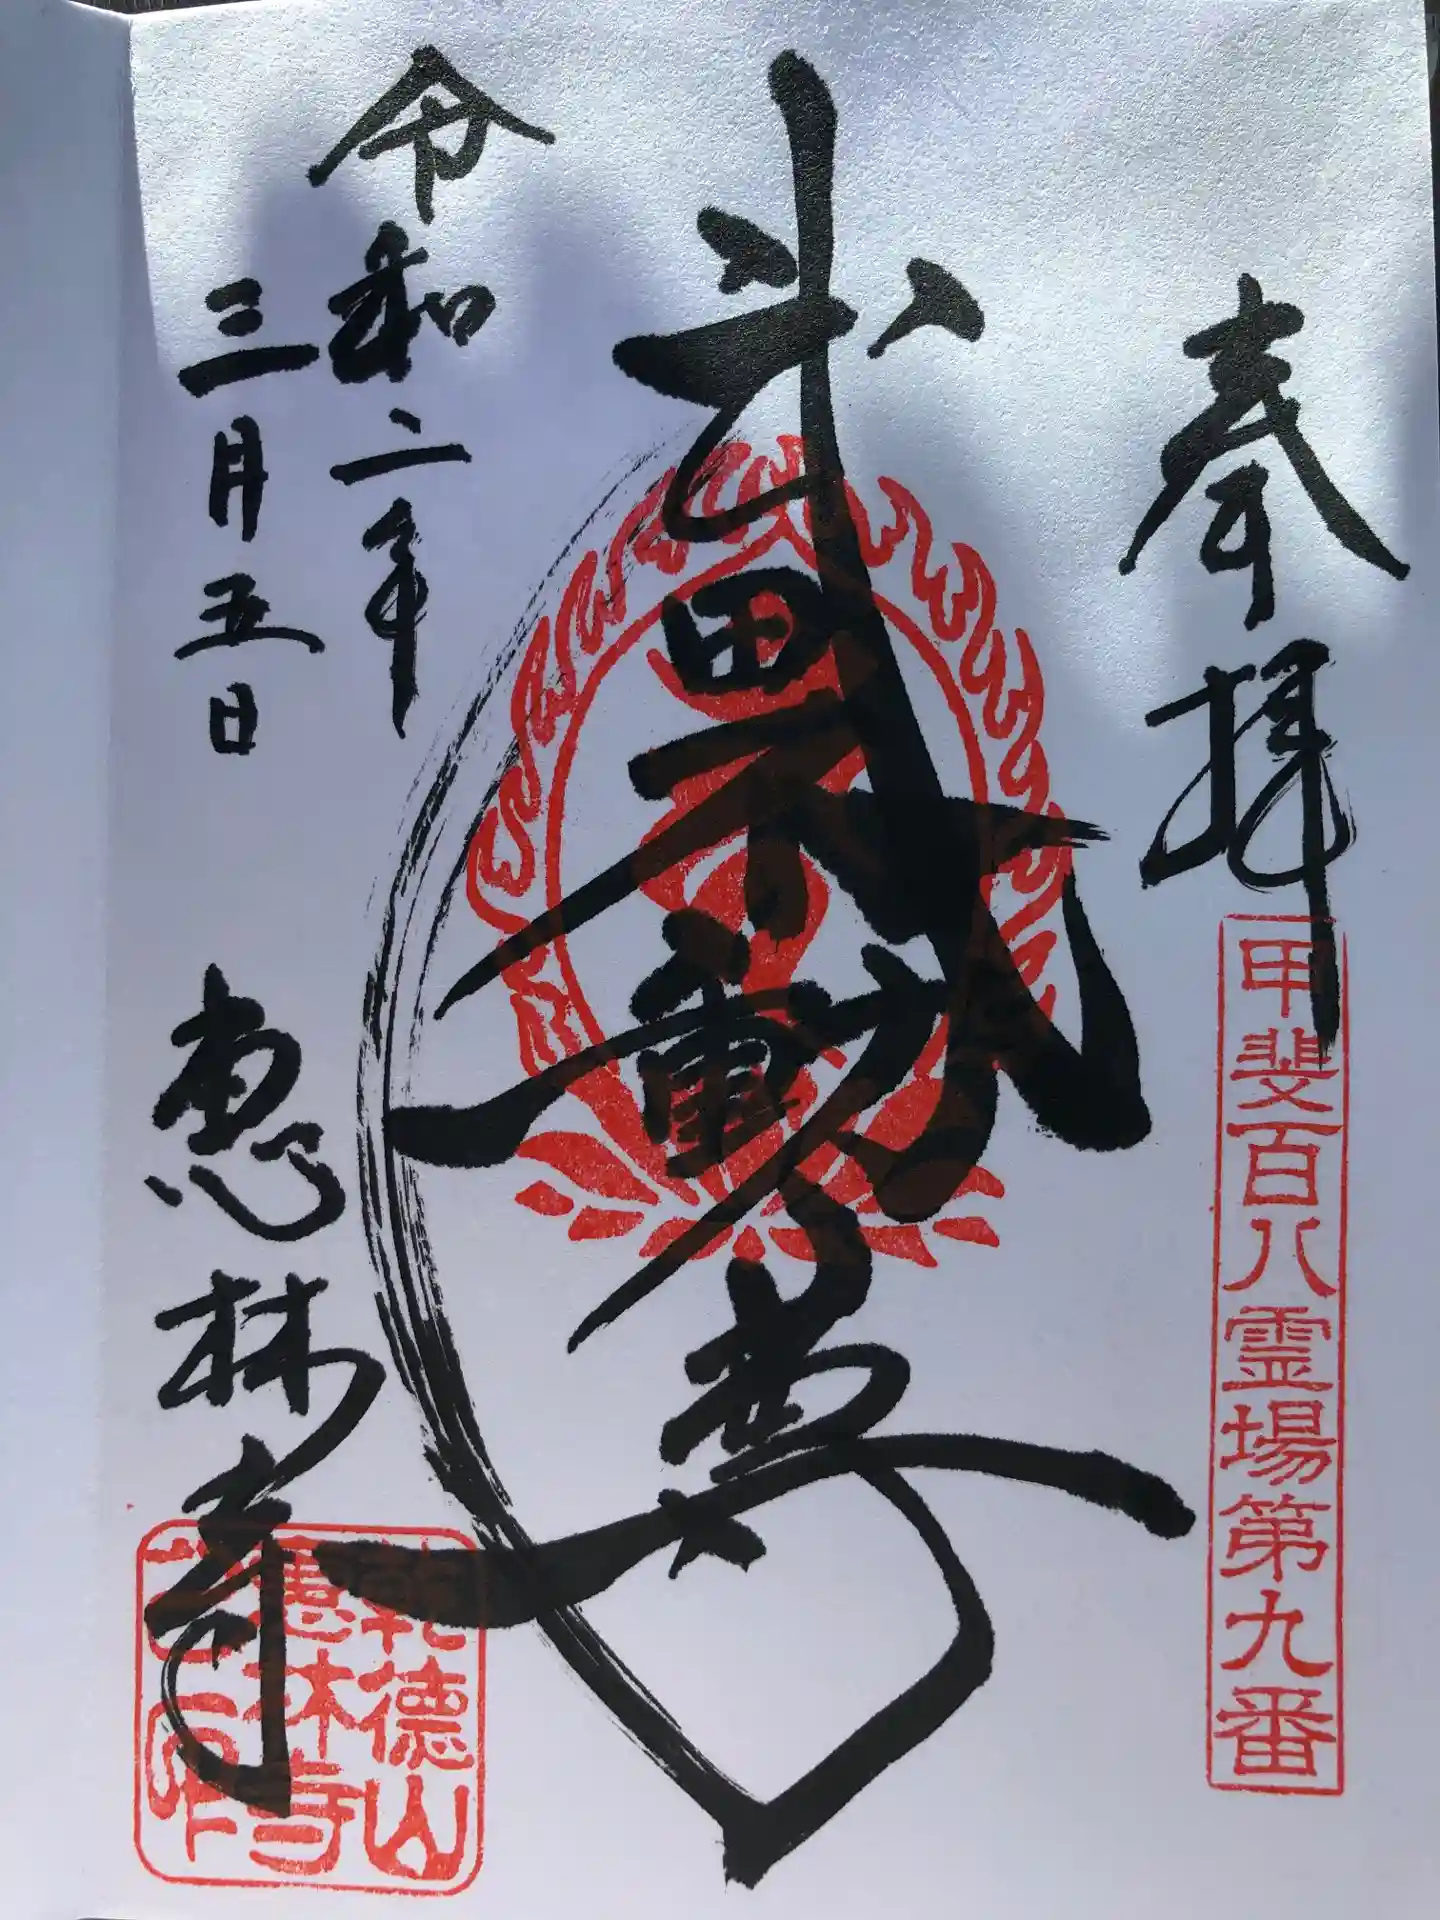 奉拝
甲斐百八霊場第九番
武田不動尊
令和二年
三月五日
恵林寺
乾徳山
恵林寺
之印